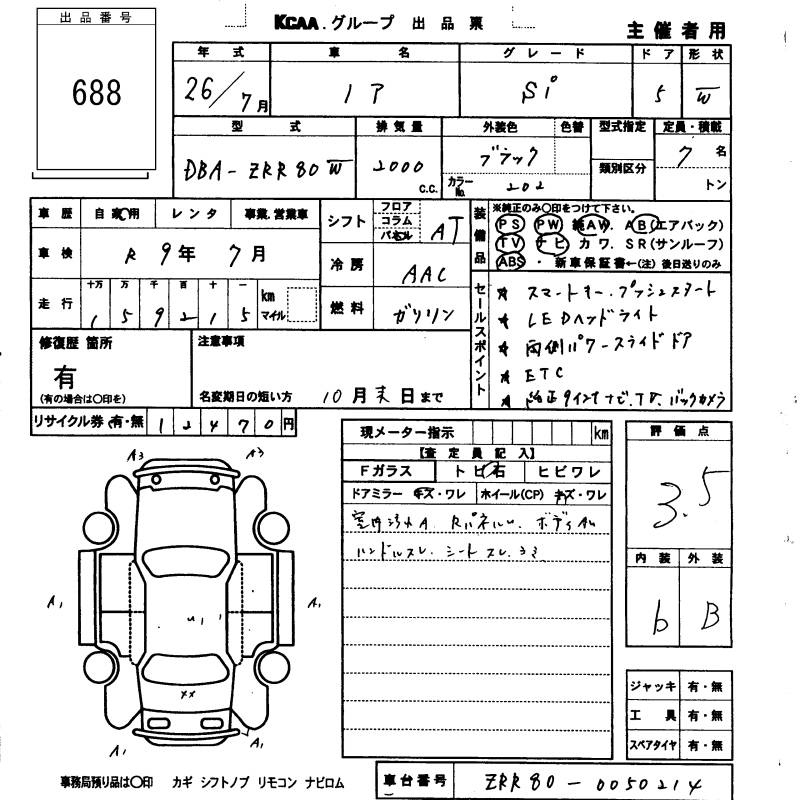 出品番号
688
KCAA.グループ 出品票
主催者用
年式 車名 グレード ドア 形状
26/7月 ノア Si 5 W
型式 排気量 外装色 色替 型式指定 定員・積載
DBA-ZRR80W 2000 c.c. ブラック 類別区分 7名
カラーNo. 202 トン
車歴 自家用 レンタ 事業.営業車
車検 R 9年 7月
走行 十万 万 千 百 十 一 km マイル
1 5 9 2 1 5
シフト フロア コラム パネル AT
冷房 AAC
燃料 ガソリン
装備品
※純正のみ〇印をつけて下さい。
PS PW 純AW. AB(エアバック)
TV ナビ カワ. SR(サンルーフ)
ABS ・ 新車保証書←(注)後日送りのみ
セールスポイント
★ スマートキー.プッシュスタート
★ LEDヘッドライト
★ 両側パワースライドドア
★ ETC
★ 純正9インチナビ.TV.バックカメラ
修復歴 箇所
有
(有の場合は〇印を)
注意事項
名変期日の短い方 10月末日まで
リサイクル券(有・無) 12470円
現メーター指示 km
【査定員記入】
Fガラス トビ石 ヒビワレ
ドアミラー キズ・ワレ ホイール(CP) キズ・ワレ
室内汚れA. Rパネルu. ボディAu
ハンドルスレ. シートスレ.
評価点
3.5
内装 外装
b B
A3 A3
A1 A1
u1
xx
A1 A1
ジャッキ 有・無
工具 有・無
スペアタイヤ 有・無
事務局預り品は〇印 カギ シフトノブ リモコン ナビロム
車台番号 ZRR80-0050214